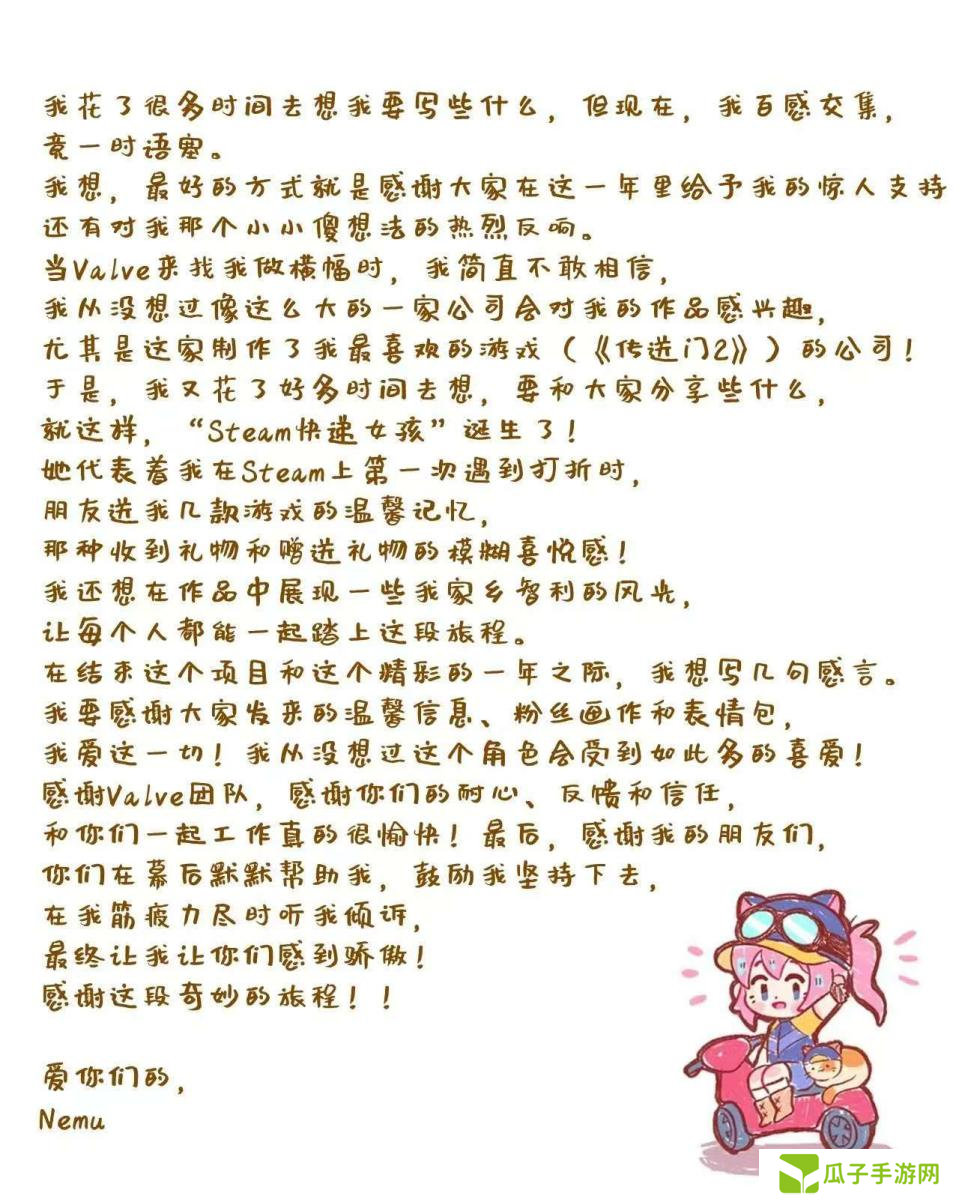 我花了很多时间去想我要写些什么，但现在，我百感交集，
竟一时语塞。
我想，最好的方式就是感谢大家在这一年里给予我的惊人支持
还有对我那个小小傻想法的热烈反响。
当Valve来找我做横幅时，我简直不敢相信，
我从没想过像这么大的一家公司会对我的作品感兴趣，
尤其是这家制作了我最喜欢的游戏（《传送门2》）的公司！
于是，我又花了好多时间去想，要和大家分享些什么，
就这样，“Steam快递女孩”诞生了！
她代表着我在Steam上第一次遇到打折时，
朋友送我几款游戏的温馨记忆，
那种收到礼物和赠送礼物的模糊喜悦感！
我还想在作品中展现一些我家乡智利的风光，
让每个人都能一起踏上这段旅程。
在结束这个项目和这个精彩的一年之际，我想写几句感言。
我要感谢大家发来的温馨信息、粉丝画作和表情包，
我爱这一切！我从没想过这个角色会受到如此多的喜爱！
感谢Valve团队，感谢你们的耐心、反馈和信任，
和你们一起工作真的很愉快！最后，感谢我的朋友们，
你们在幕后默默帮助我，鼓励我坚持下去，
在我筋疲力尽时听我倾诉，
最终让我让你们感到骄傲！
感谢这段奇妙的旅程！！
爱你们的，
Nemu
瓜子手游网